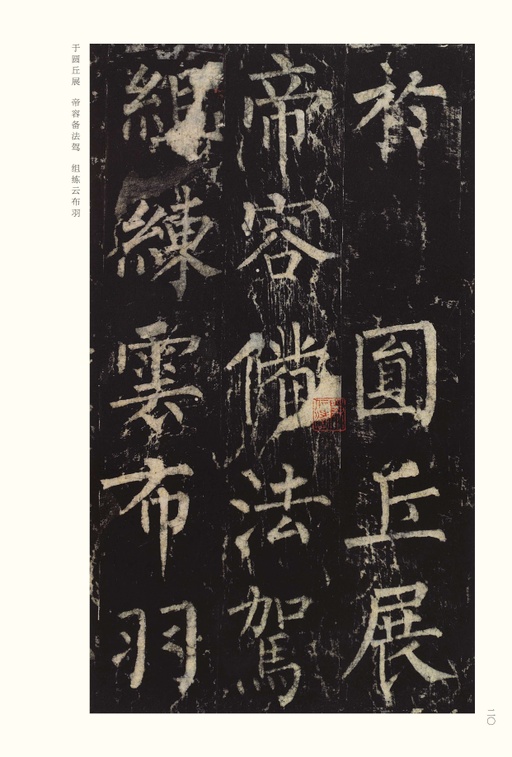 於圓丘展
帝容備法駕
組練雲布羽
于圆丘展 帝容备法驾 组练云布羽
二〇